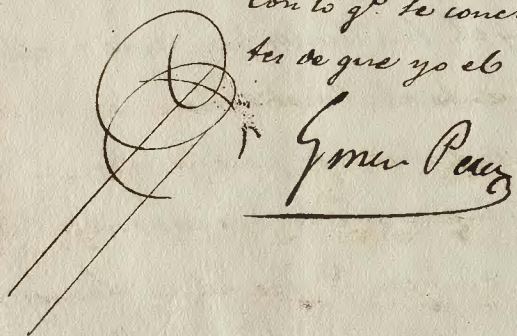 con lo q.e se conc
tes de que yo el
Gines Perez